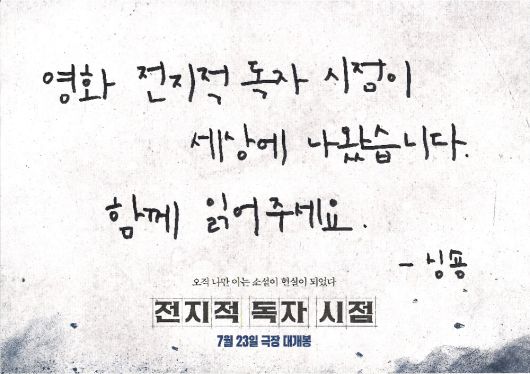 영화 전지적 독자 시점이
세상에 나왔습니다.
함께 읽어주세요.
- 싱숑
오직 나만 아는 소설이 현실이 되었다
전지적 독자 시점
7월 23일 극장 대개봉